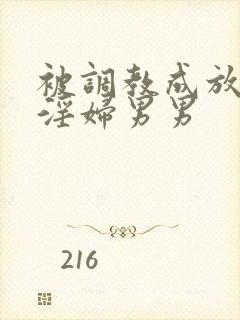 被調教成放
淫婦男男
216